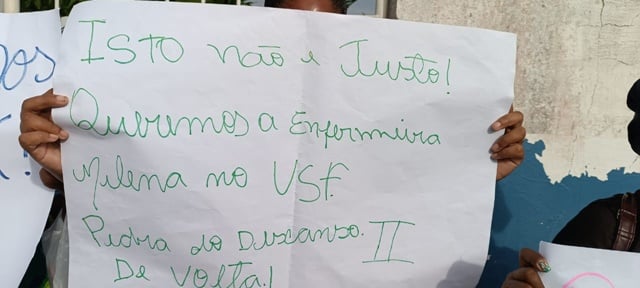 Isto não é Justo!
Queremos a Enfermeira
Milena no USF.
Pedra do Descanso. II
De Volta!